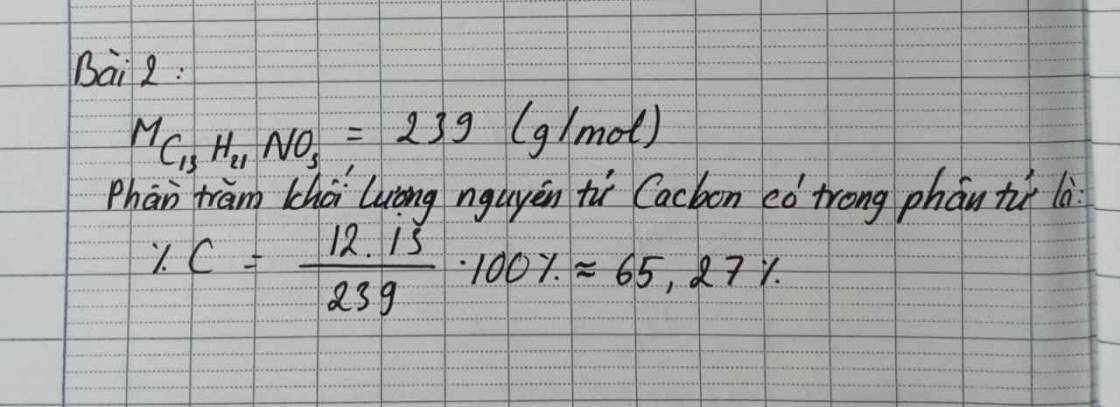 Bài 2 :
M C₁₃ H₂₁ NO₃ = 239 (g/mol)
Phần trăm khối lượng nguyên tử Cacbon có trong phân tử là:
% C = \frac{12.13}{239} .100% ≈ 65,27%